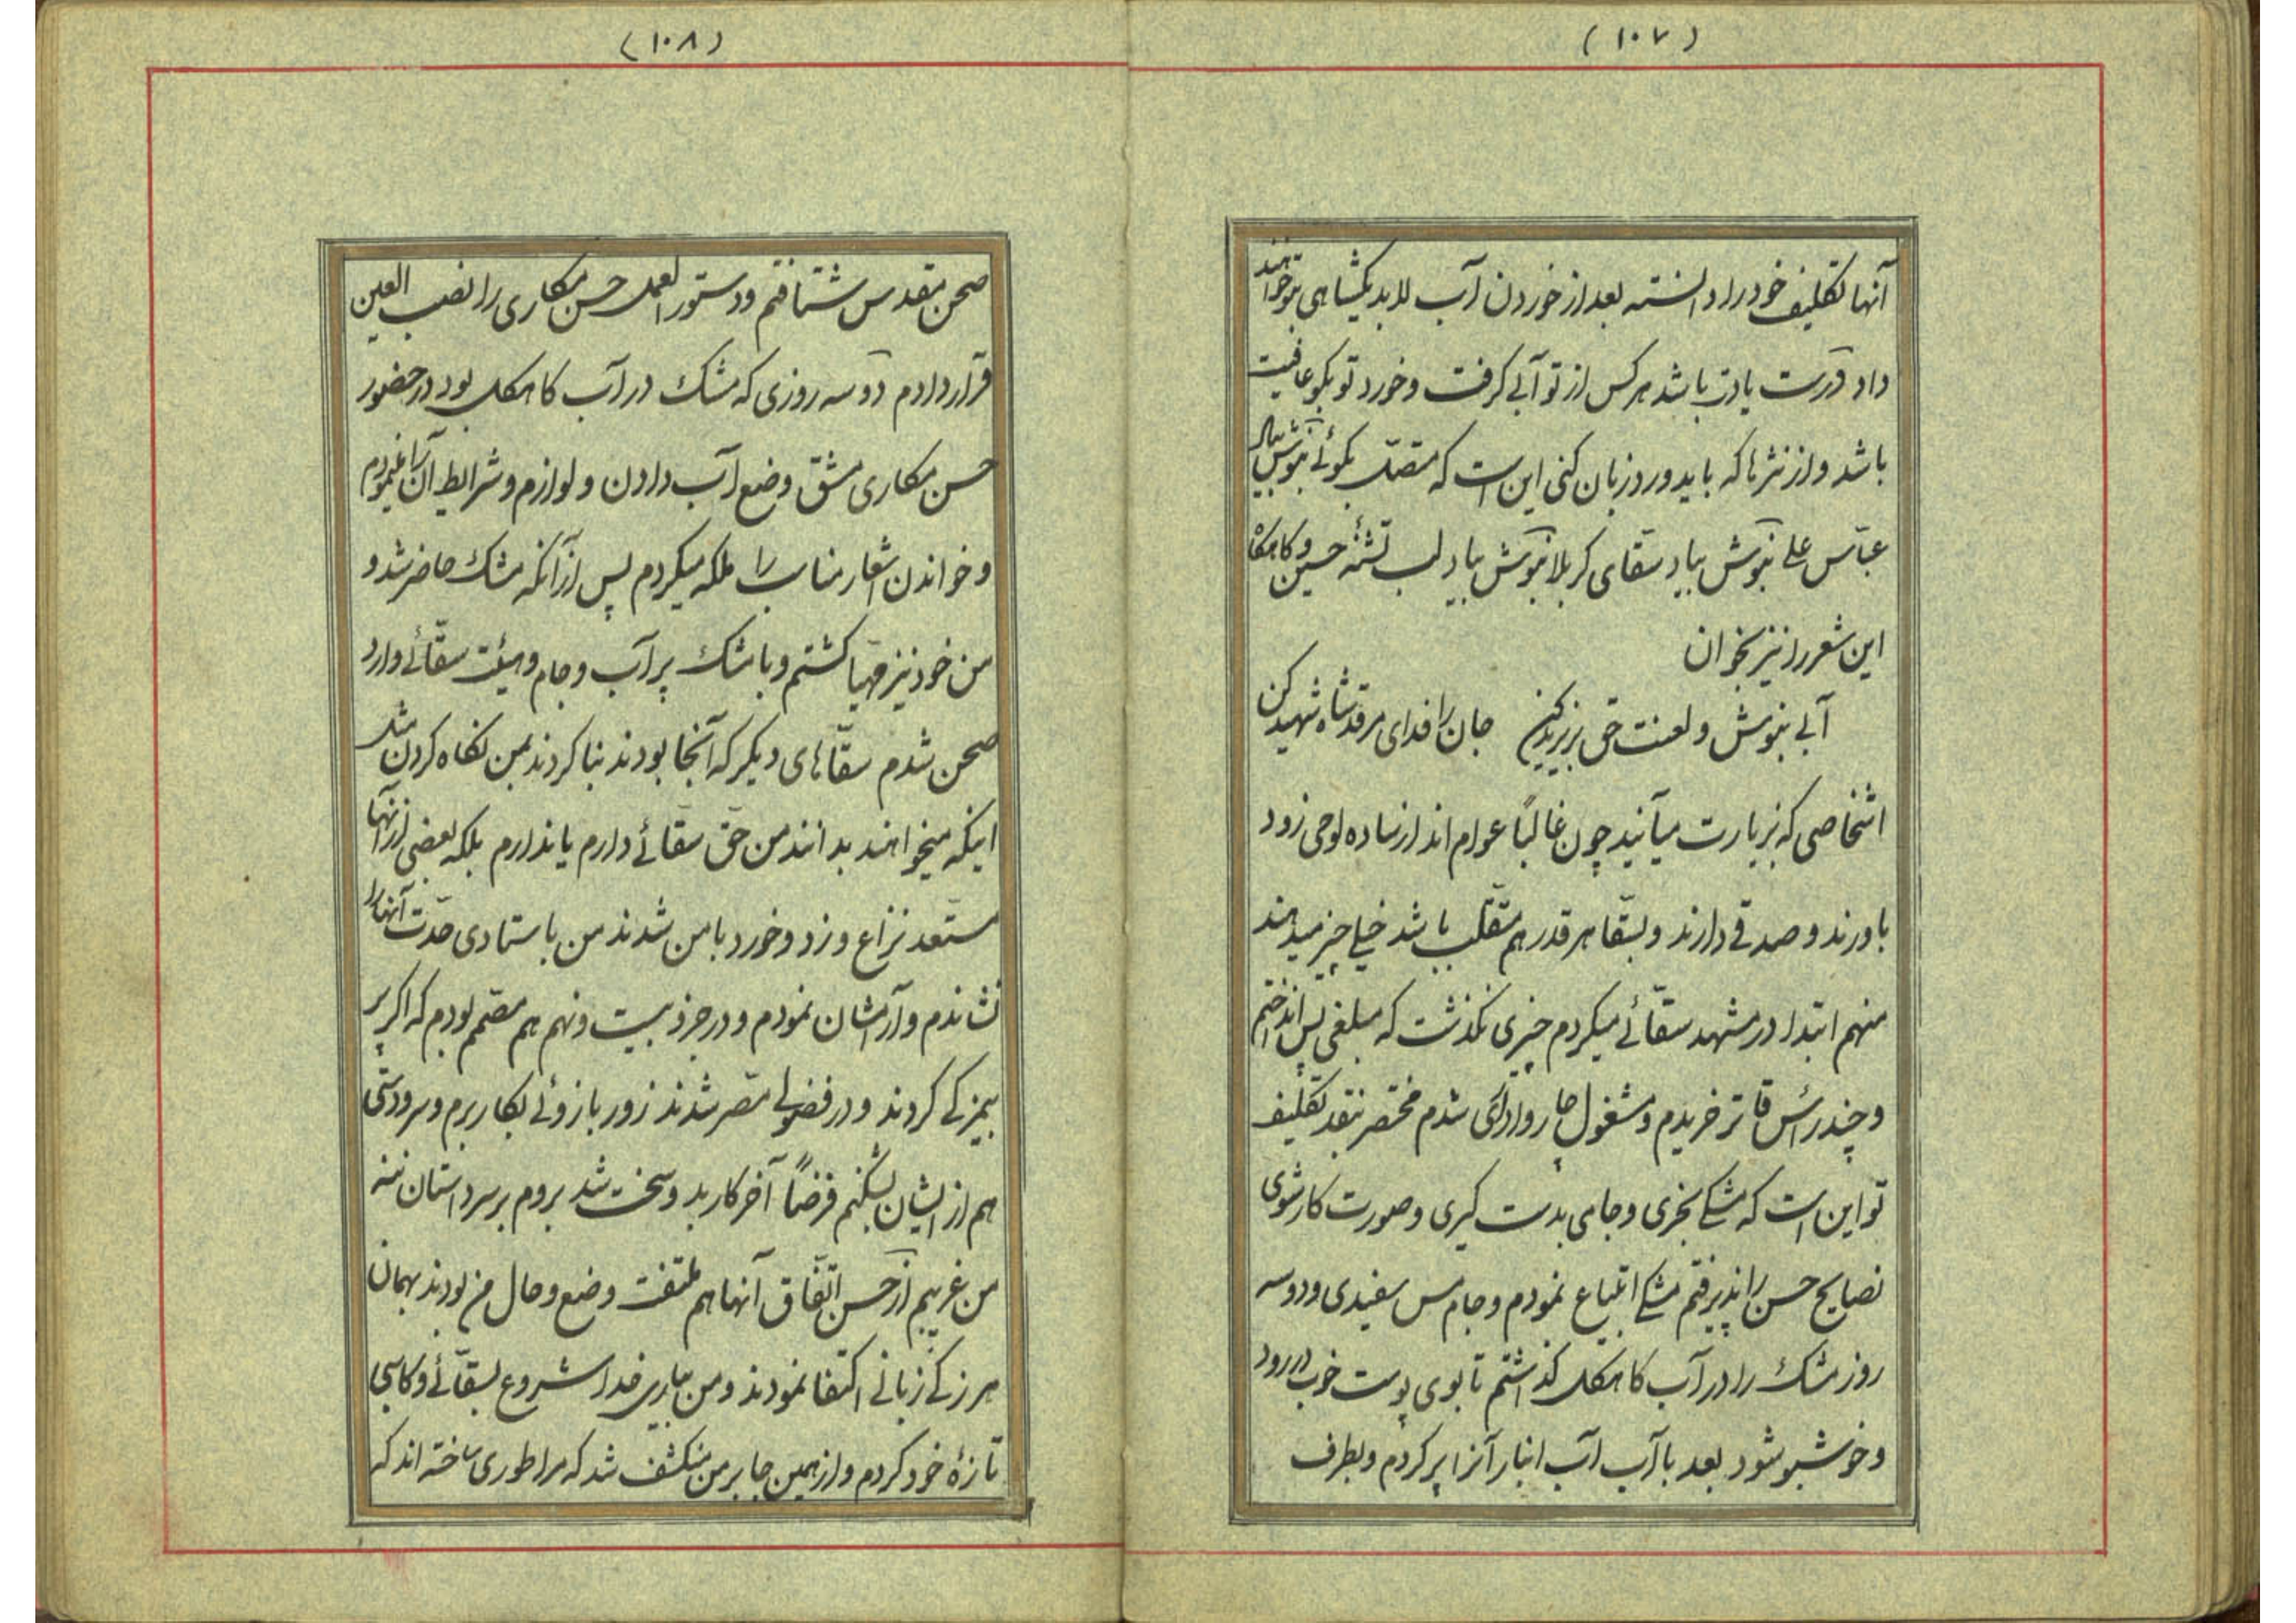 (۱۰۷)
آنها تکلیف خود را دانسته بعد از خوردن آب لابد یکشاهی بتو خواهند
داد درست یادت باشد هر کس از تو آبی گرفت و خورد تو بگو عافیت
باشد و از نثرها که باید ورد زبان کنی این است که متصل بگوئی بنوش بیاد
عباس علی بنوش بیاد سقای کربلا بنوش بیاد لب تشنه حسین و گاهگاه
این شعر را نیز بخوان
آبی بنوش و لعنت حق بر یزید کن جان را فدای مرقد شاه شهید کن
اشخاصی که بزیارت میآیند چون غالبًا عوام اند از ساده لوحی زود
باورند و صدقی دارند و بسقا هر قدر هم متقلب باشد خیلی چیز میدهند
منهم ابتدا در مشهد سقّائی میکردم چیزی نگذشت که مبلغی پس انداختم
و چند رأس قاتر خریدم و مشغول چاروا داری شدم مختصر بنقد تکلیف
تو این است که مشکی بخری و جامی بدست گیری و صورت کار شوی
نصایح حسن را پذیرفتم مشکی ابتیاع نمودم و جام مس سفیدی و دو سه
روز مشک را در آب کاهگل گذاشتم تا بوی پوست خوب در رود
و خوشبو شود بعد با آب آب انبار آنرا پر کردم و بطرف
(۱۰۸)
صحن مقدس شتافتم و دستور العمل حسن مکاری را نصب العین
قرار دادم دو سه روزی که مشک در آب کاهگل بود در حضور
حسن مکاری مشق وضع آب دادن و لوازم و شرایط آن را مینمودم
و خواندن اشعار مناسب را ملکه میکردم پس از آنکه مشک حاضر شد و
من خود نیز مهیا گشتم و با مشک پر آب و جام و هیئت سقّائی وارد
صحن شدم سقّاهای دیگر که آنجا بودند بنا کردند بمن نگاه کردن مثل
اینکه میخواهند بدانند من حق سقائی دارم یا ندارم بلکه بعضی از آنها
مستعد نزاع و زد و خورد با من شدند من باستادی حدّت آنها را
نشاندم و آرامشان نمودم و در جزو نیت و فهم هم مصمّم بودم که اگر پر
بیمزگی کردند و در فضولی مصر شدند زور بازوئی بکار برم و سر و دستی
هم از ایشان بشکنم فرضًا آخر کار بد و سخت شد بروم بر سر داستان ننه
من غریبم از حسن اتّفاق آنها هم ملتفت وضع و حال من بودند بهمان
هرزگی زبانی اکتفا نمودند و من بیاری خدا شروع بسقّائی و کاسبی
تازهٔ خود کردم و از همین جا بر من منکشف شد که مرا طوری ساخته اند که